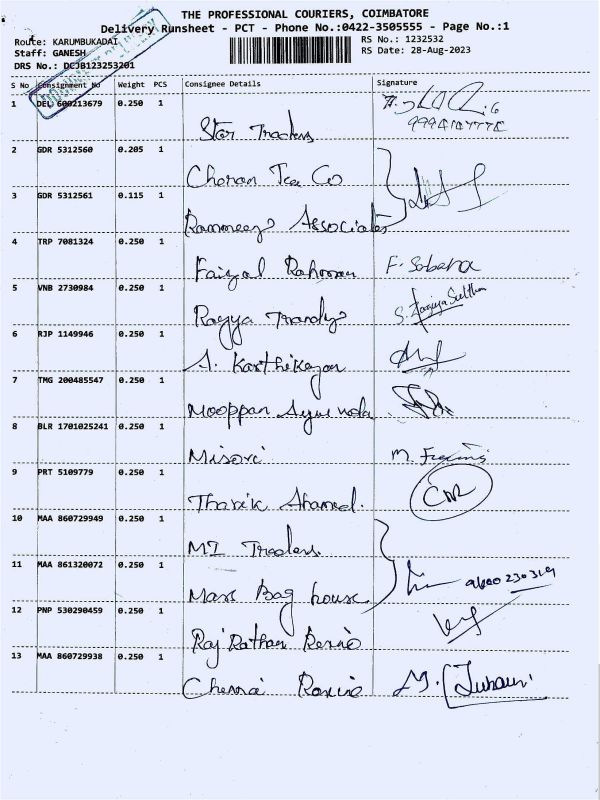 THE PROFESSIONAL COURIERS, COIMBATORE
Delivery Runsheet - PCT - Phone No.:0422-3505555 - Page No.:1
Route: KARUMBUKADAI RS No.: 1232532
Staff: GANESH RS Date: 28-Aug-2023
DRS No.: DCJB123253201
S No Consignment No Weight PCS Consignee Details Signature
1 DEL 600213679 0.250 1
Star Traders
2 GDR 5312560 0.205 1
Choran Tea Co
3 GDR 5312561 0.115 1
Associates
4 TRP 7081324 0.250 1
Faizal Rahman F. Sabana
5 VNB 2730984 0.250 1
6 RJP 1149946 0.250 1
A. Karthikeyan
7 TMG 200485547 0.250 1
Mooppan
8 BLR 1701025241 0.250 1
Misori M.
9 PRT 5109779 0.250 1
Tharik Ahamed.
10 MAA 860729949 0.250 1
MI Traders.
11 MAA 861320072 0.250 1
Mass Bag house
12 PNP 530290459 0.250 1
Raj Rathan
13 MAA 860729938 0.250 1
Chennai